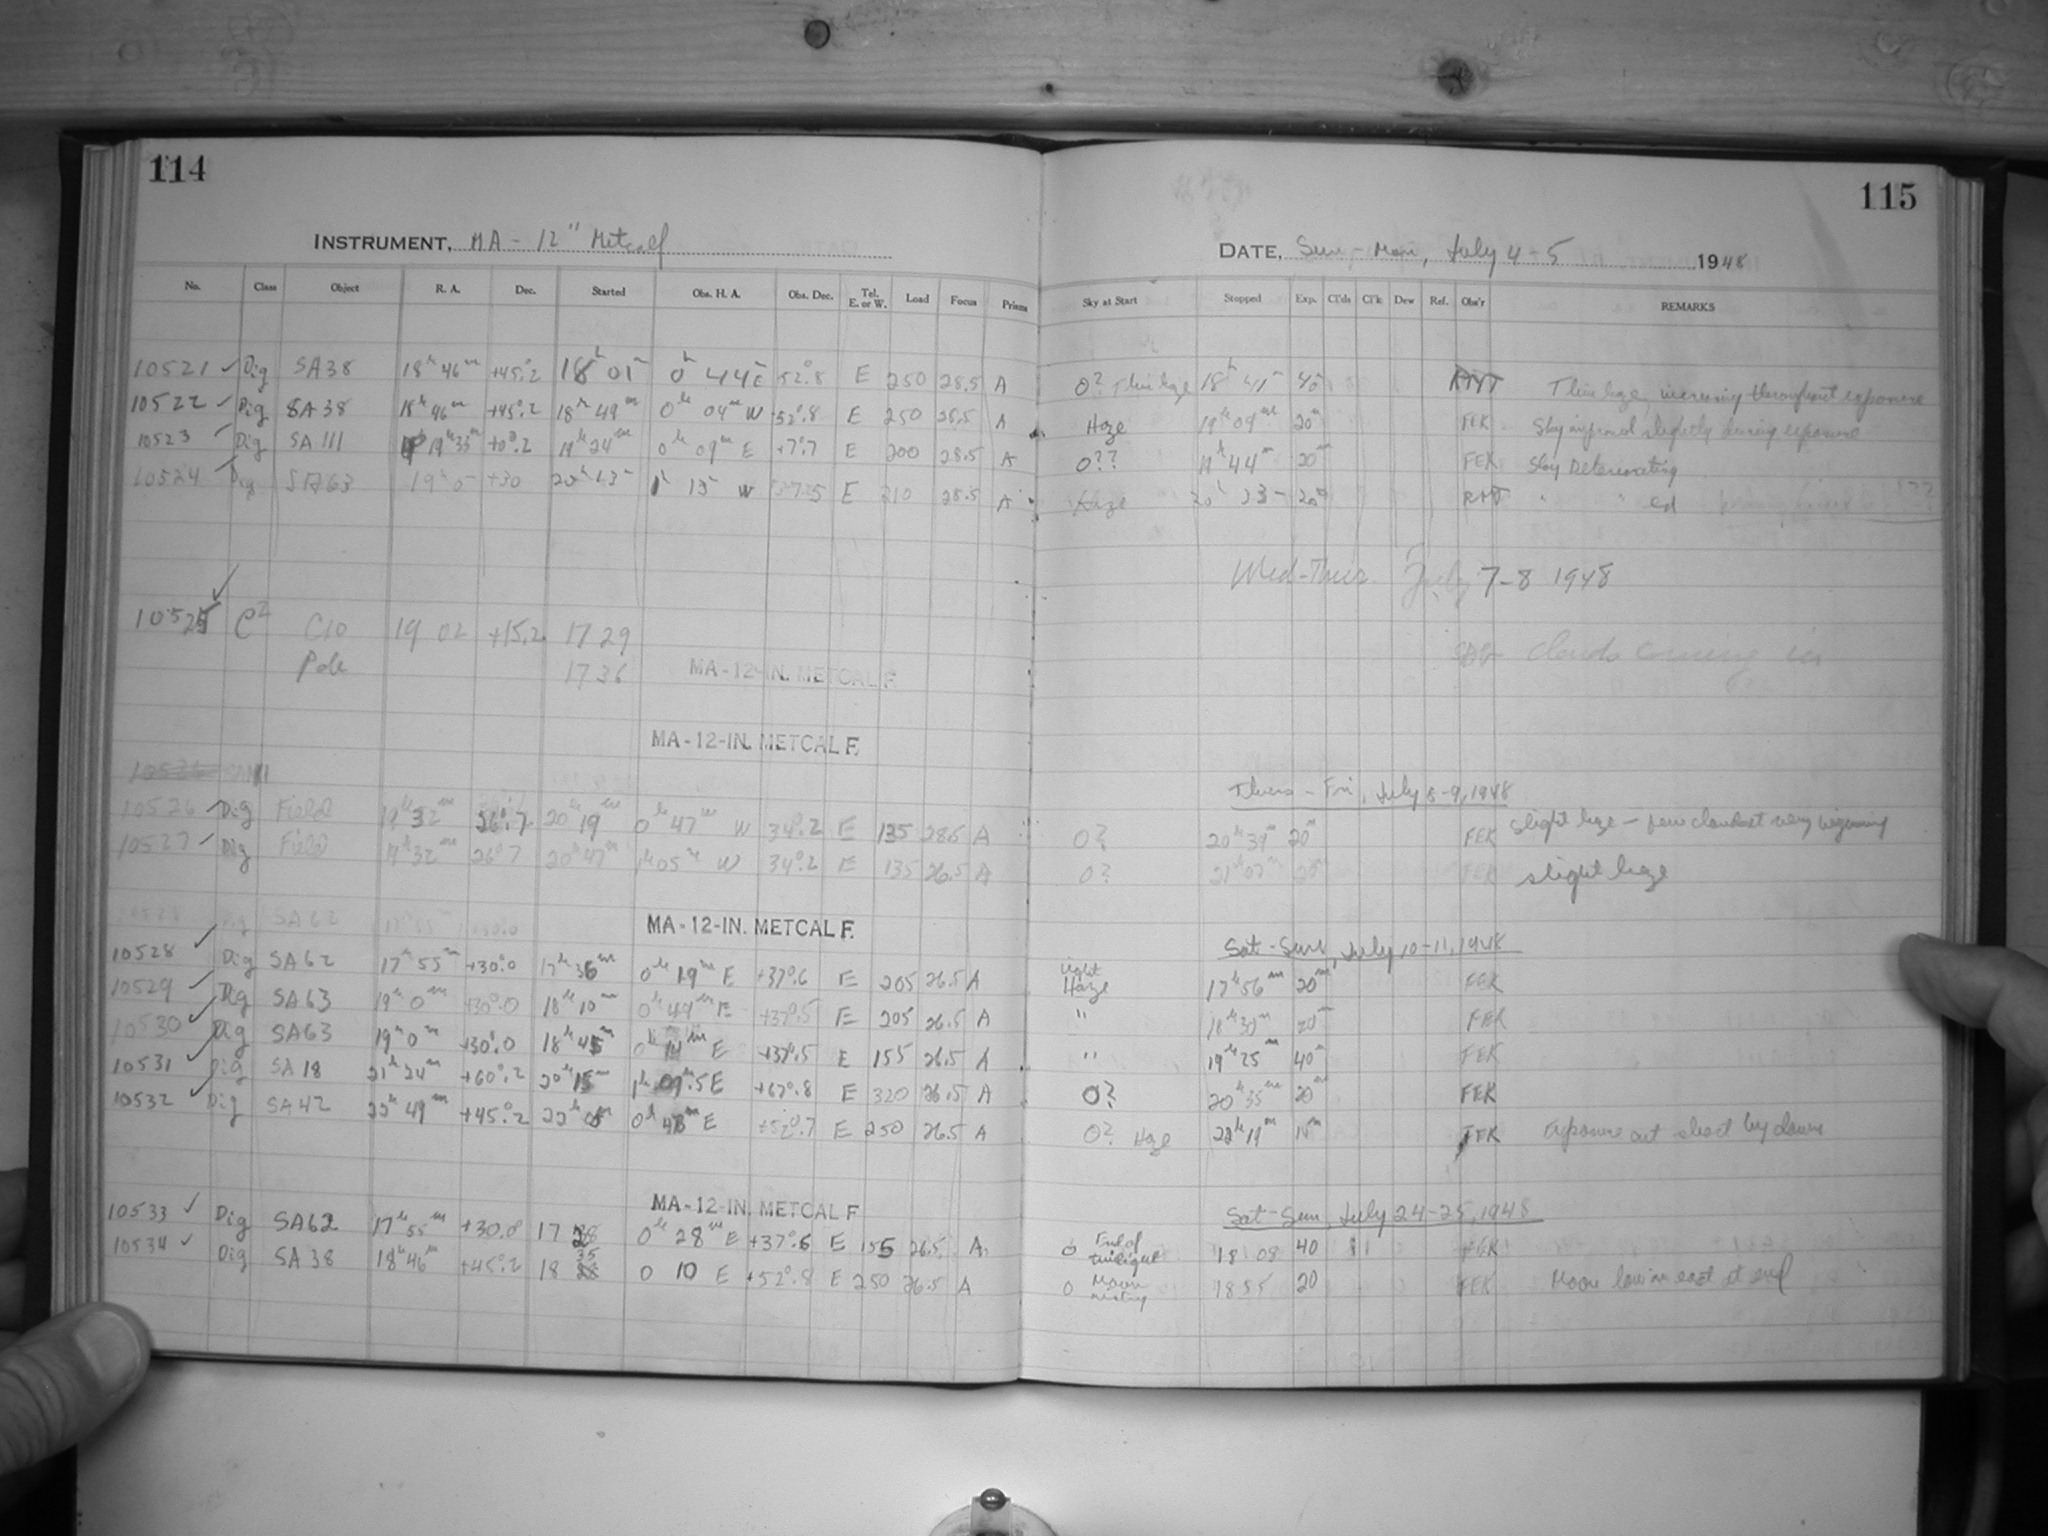 114
115
INSTRUMENT, MA - 12" Metcalf
DATE, Sun - Mon, July 4 - 5 1948
No. Class Object R. A. Dec. Started Obs. H. A. Obs. Dec. Tel. E. or W. Load Focus Prisms Sky at Start Stopped Exp. Cl'ds Cl'k Dew Ref. Obs'r REMARKS
10521 ✓ Dig SA38 18h 46m +45°.2 18h 01m 0h 44m E 52°.8 E 250 28.5 A O? Thin haze 18h 41m 40m RMT Thin haze, increasing throughout exposure
10522 ✓ Dig SA 38 18h 46m +45°.2 18h 49m 0h 04m W +52°.8 E 250 28.5 A Haze 19h 09m 20m FEK Sky improved slightly during exposure
10523 ✓ Dig SA 111 19h 33m +0°.2 19h 24m 0h 09m E +7°.7 E 200 28.5 A O?? 19h 44m 20m FEK Sky Deteriorating
10524 ✓ Dig SA63 19h 0m +30 20h 13m 1h 15m W 37.5 E 210 28.5 A Haze 20h 33m 20m RMT " " ed
Wed-Thur July 7-8 1948
10525 ✓ C2 C10 19 02 +15.2 17 29
Pole 17 36 MA-12-IN. METCALF. Clouds coming in
MA-12-IN. METCALF.
10526 SA111
Thurs - Fri, July 8-9, 1948
10526 ✓ Dig Field 19h 32m 26°.7 20h 19m 0h 47m W 34°.2 E 135 28.5 A O? 20h 39m 20m FEK slight haze - few clouds at very beginning
10527 ✓ Dig Field 19h 32m 26°.7 20h 47m 1h 05m W 34°.2 E 135 26.5 A O? 21h 07m 20m FEK slight haze
10528 Dig SA62 17h 55m +30.0 MA-12-IN. METCALF.
Sat-Sun, July 10-11, 1948
10528 ✓ Dig SA62 17h 55m +30°.0 17h 36m 0h 19m E +37°.6 E 205 26.5 A Light Haze 17h 56m 20m FEK
10529 ✓ Dig SA63 19h 0m +30°.0 18h 10m 0h 49m E +37°.5 E 205 26.5 A " 18h 30m 20m FEK
10530 ✓ Dig SA63 19h 0m +30°.0 18h 45m 0h 14m E +37°.5 E 155 26.5 A " 19h 25m 40m FEK
10531 ✓ Dig SA 18 21h 24m +60°.2 20h 15m 1h 09m.5 E +67°.8 E 320 26.5 A O? 20h 35m 20m FEK
10532 ✓ Dig SA42 22h 49m +45°.2 22h 08m 0h 48m E +52°.7 E 250 26.5 A O? Haze 22h 19m 11m FEK Exposure cut short by dawn
MA-12-IN. METCALF
Sat-Sun, July 24-25, 1948
10533 ✓ Dig SA62 17h 55m +30.0 17 28 0h 28m E +37°.6 E 155 26.5 A O End of twilight 18 08 40 FEK
10534 ✓ Dig SA 38 18h 46m +45°.2 18 35 0 10 E +52°.8 E 250 26.5 A O Moon 18 55 20 FEK Moon low in east at end